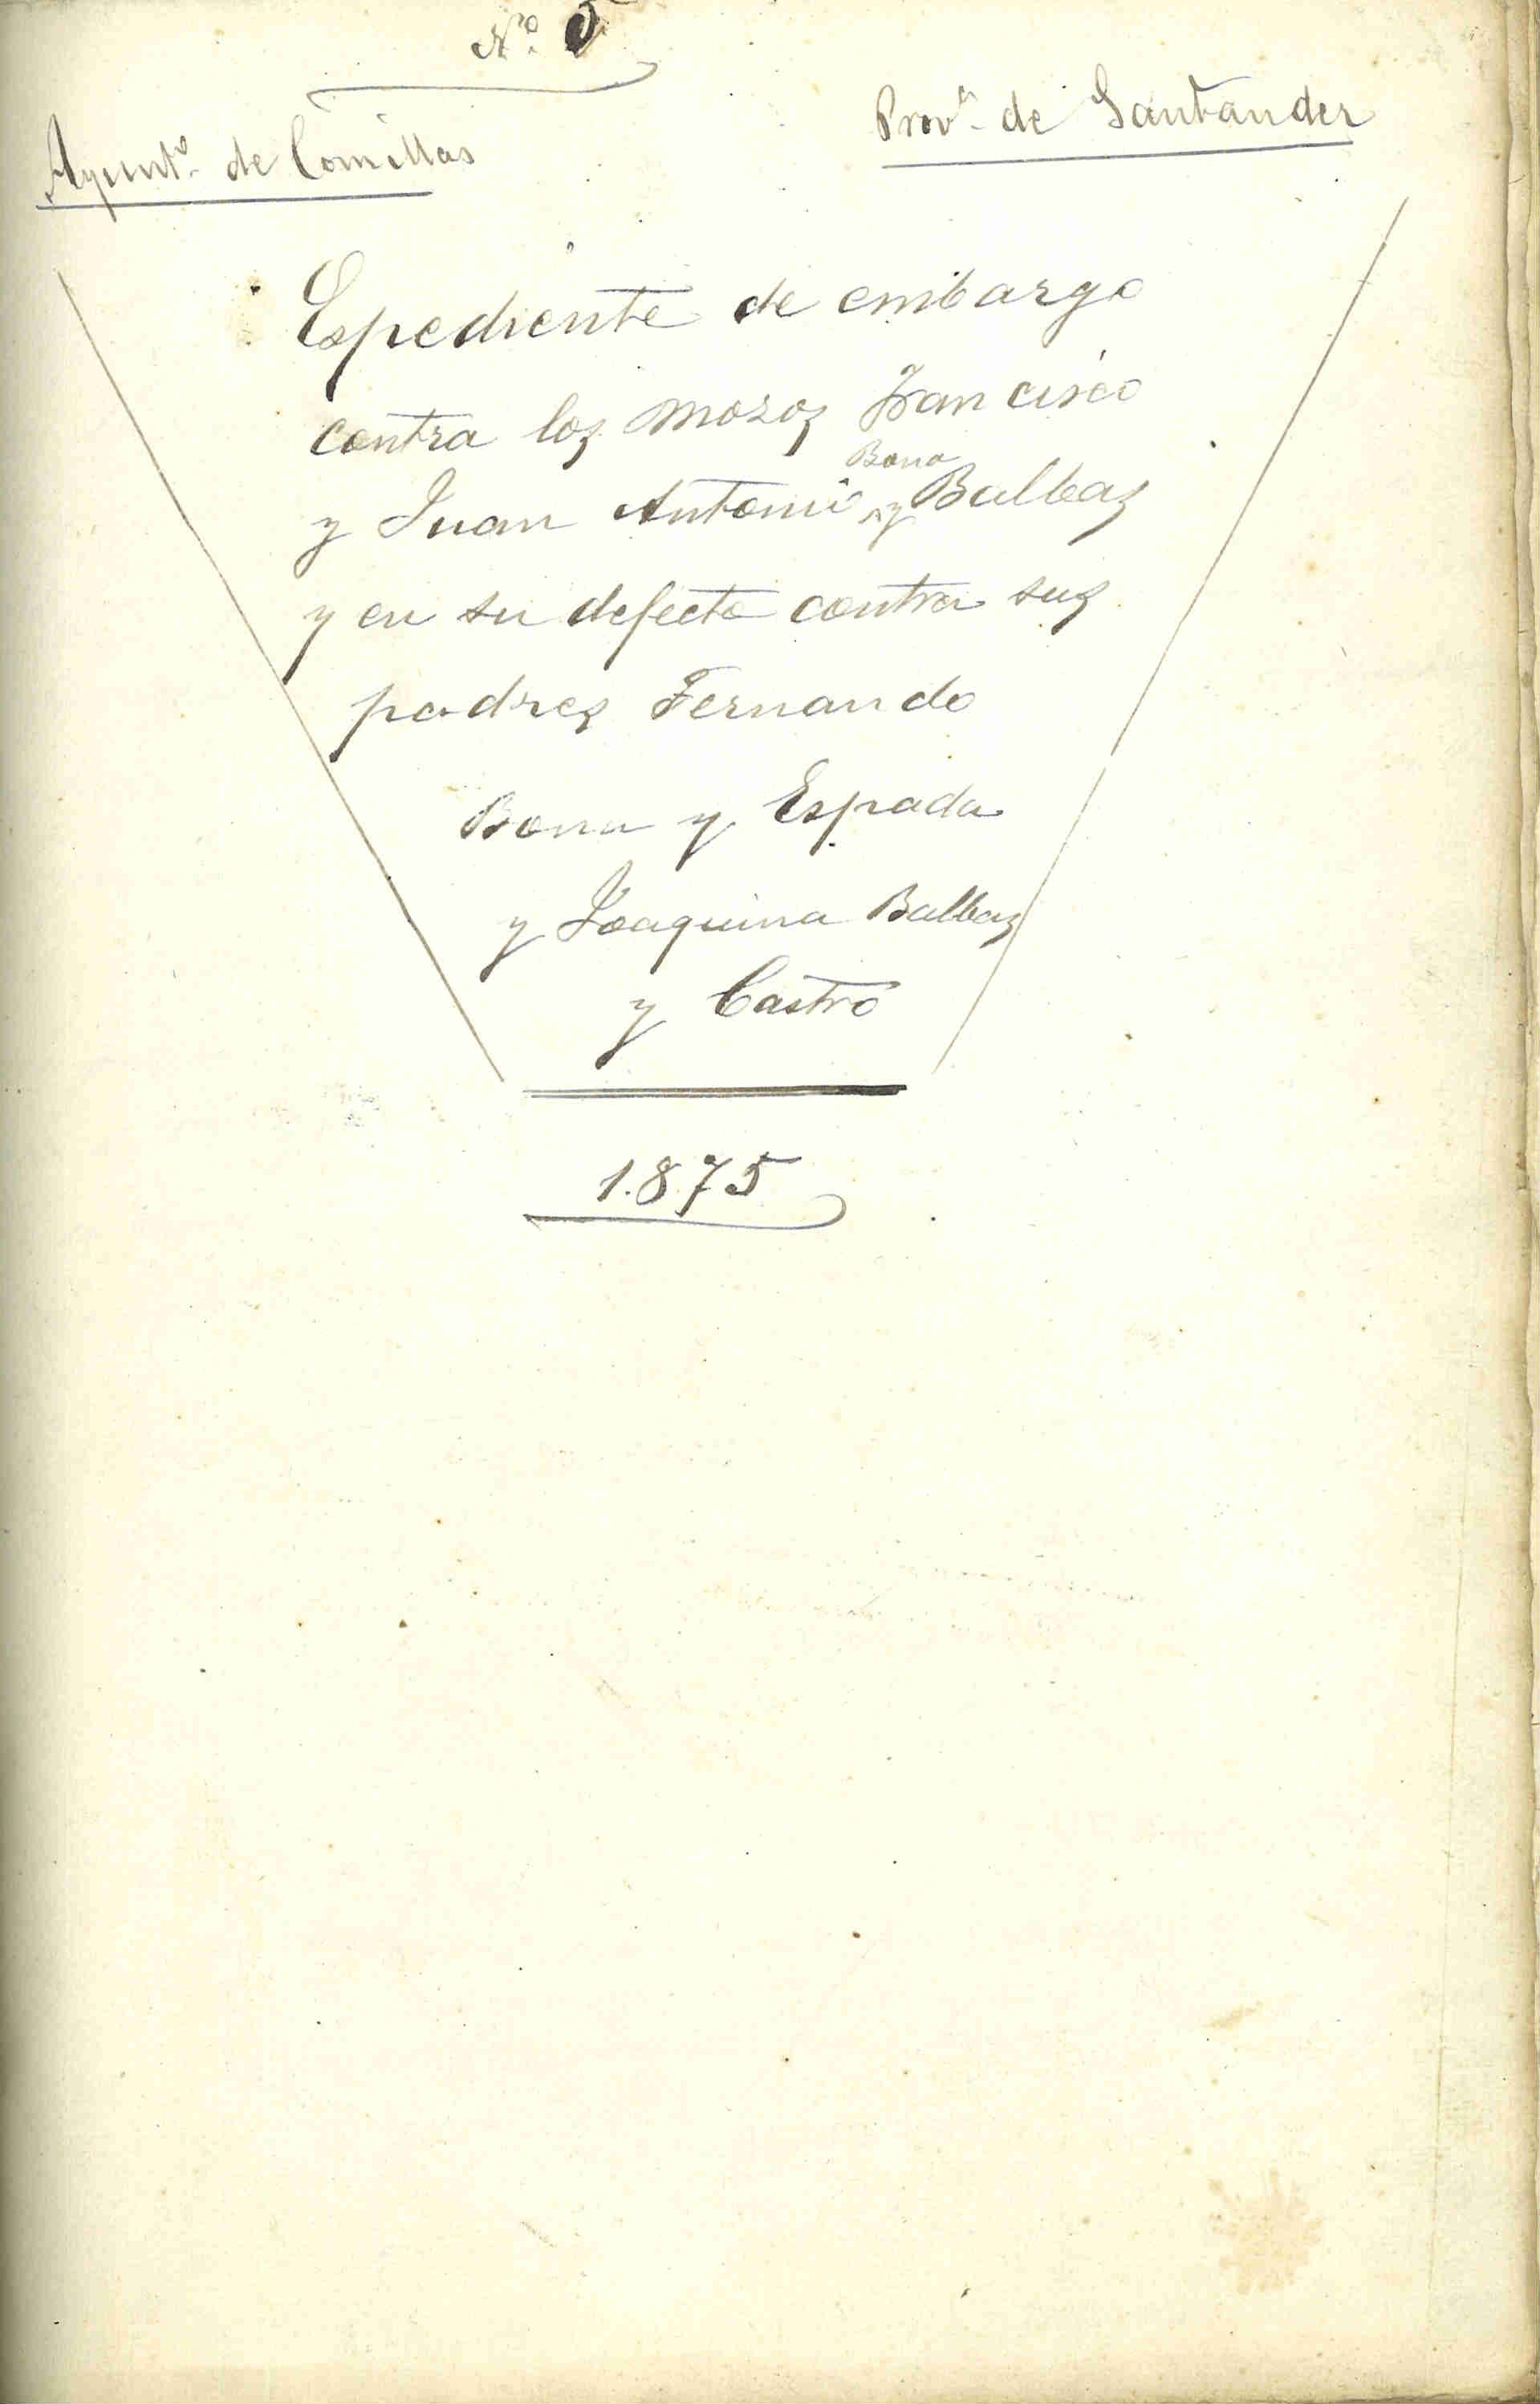 Nº 5
Ayuntº de Comillas
Provª de Santander
Espediente de embargo
contra los mozos Francisco
y Juan Antonio Bona y Balbas
y en su defecto contra sus
padres Fernando
Bona y Espada
y Joaquina Balbas
y Castro
1.875